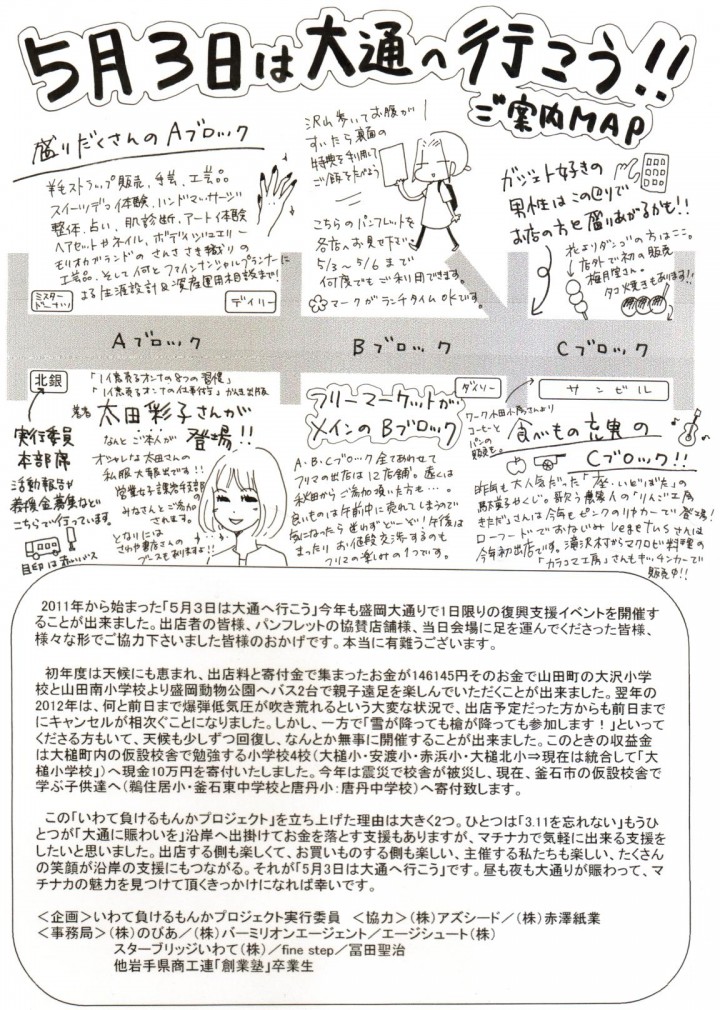 5月3日は大通へ行こう!!
ご案内MAP
盛りだくさんのAブロック
羊毛ストラップ販売、手芸、工芸品
スイーツデコ体験、ハンドマッサージ
整体、占い、肌診断、アート体験
ヘアセットやネイル、ボディジュエリー
モリオカグランドの さんさ さき織りの
工芸品、そして何とファイナンシャルプランナーに
よる生涯設計&資産運用相談まで!
沢山歩いてお腹が
すいたら裏面の
特典を利用して
ご飯を食べよう
こちらのパンフレットを
各店へお見せ下さい
5/3～5/6まで
何度でもご利用できます。
マークがランチタイムOKです。
ガジェット好きの
男性はこの辺りで
お店の方と盛りあがるかも!!
花よりダンゴの方はここ。
店外で初の販売
梅月堂さん。
タコ焼きもあります!
ミスタードーナツ
デイリー
Aブロック
Bブロック
Cブロック
北銀
ダイソー
サンビル
「1億売るオンナの8つの習慣」
「1億売るオンナの仕事術」かんき出版
著者 太田彩子さんが
登場!!
なんと ご本人が
オシャレな太田さんの
私服大放出です!!
営業女子課岩手支部の
みなさんとご参加
されます。
となりには
さわや書店さんの
ブースもありますよ!!
実行委員
本部席
活動報告や
義援金募集など
こちらで行っています。
目印は赤いバス
フリーマーケットが
メインのBブロック
A・B・Cブロック全てあわせて
フリマの出店は12店舗。遠くは
秋田からご参加頂いた方も…。
良いものは午前中に売れてしまうので
気になったら迷わずどーぞ!午後は
まったりお値段交渉するのも
フリマの楽しみの1つです。
コーヒーと
パンの
販売も。
食べもの充実の
Cブロック!!
昨年も大人気だった
駄菓子めくじ。
「りんご工房
きただ」さんは今年もピンクのリヤカーで登場!
ローフードでおなじみvegetusさんは
今年初出店です。滝沢村からマクロビ料理の
「カラコマ工房」さんもキッチンカーで
販売中!!
2011年から始まった「5月3日は大通へ行こう」今年も盛岡大通りで1日限りの復興支援イベントを開催す
ることが出来ました。出店者の皆様、パンフレットの協賛店舗様、当日会場に足を運んでくださった皆様、
様々な形でご協力下さいました皆様のおかげです。本当に有難うございます。
初年度は天候にも恵まれ、出店料と寄付金で集まったお金が146145円そのお金で山田町の大沢小学
校と山田南小学校より盛岡動物公園へバス2台で親子遠足を楽しんでいただくことが出来ました。翌年の
2012年は、何と前日まで爆弾低気圧が吹き荒れるという大変な状況で、出店予定だった方からも前日まで
にキャンセルが相次ぐことになりました。しかし、一方で「雪が降っても槍が降っても参加します！」といっ
てくださる方もいて、天候も少しずつ回復し、なんとか無事に開催することが出来ました。このときの収益金
は大槌町内の仮設校舎で勉強する小学校4校(大槌小・安渡小・赤浜小・大槌北小⇒現在は統合して「大
槌小学校」)へ現金10万円を寄付いたしました。今年は震災で校舎が被災し、現在、釜石市の仮設校舎で
学ぶ子供達へ(鵜住居小・釜石東中学校と唐丹小:唐丹中学校)へ寄付致します。
この「いわて負けるもんかプロジェクト」を立ち上げた理由は大きく2つ。ひとつは「3.11を忘れない」もうひ
とつが「大通に賑わいを」沿岸へ出掛けてお金を落とす支援もありますが、マチナカで気軽に出来る支援を
したいと思いました。出店する側も楽しくて、お買いものする側も楽しい、主催する私たちも楽しい、たくさん
の笑顔が沿岸の支援にもつながる。それが「5月3日は大通へ行こう」です。昼も夜も大通りが賑わって、マ
チナカの魅力を見つけて頂くきっかけになれば幸いです。
＜企画＞いわて負けるもんかプロジェクト実行委員 ＜協力＞(株)アズシード／(株)赤澤紙業
＜事務局＞(株)のびあ／(株)バーミリオンエージェント／エージシュート(株)
スターブリッジいわて(株)／fine step／冨田聖治
他岩手県商工連「創業塾」卒業生